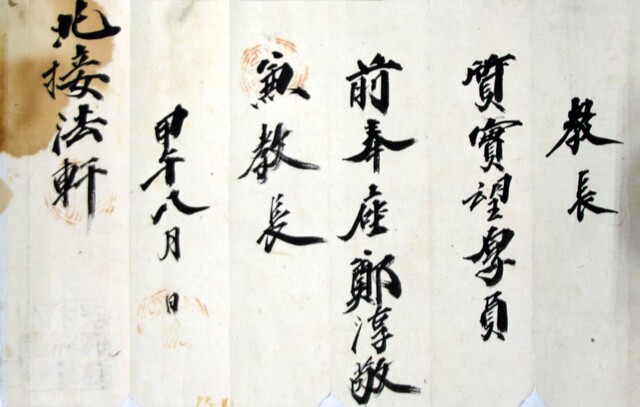 教長
質實望厚員
前奉座鄭淳敬
兼教長
甲午八月 日
北接法軒